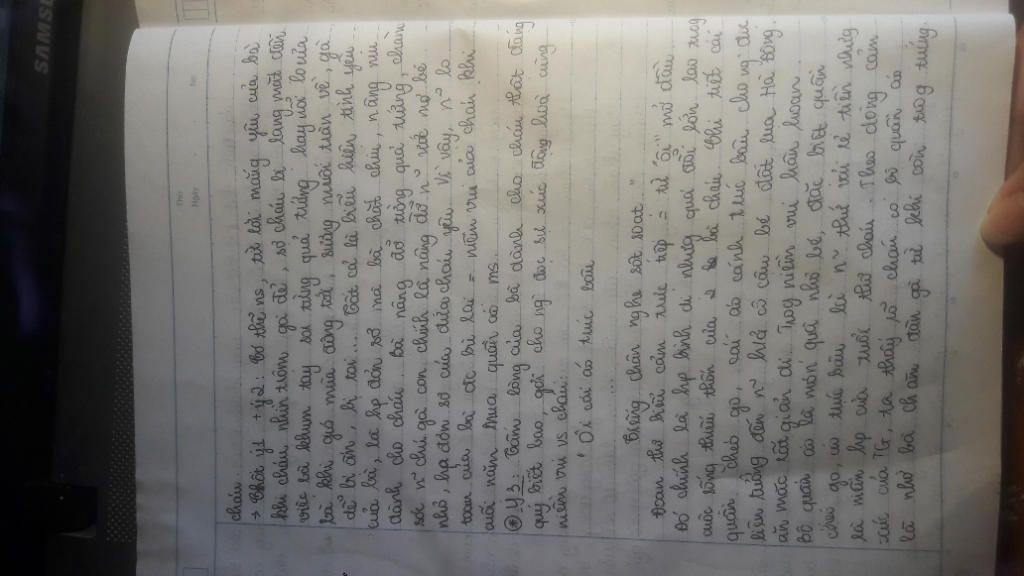 SAMSU
Thứ
Ngày
No:
cháu.
→ Khái ý1 + ý2: Bổ thơ ns, từ lời mắng yêu của bà
khi cháu nhìn trộm gà đẻ, sợ cháu bị lang mặt đến
việc bà khum tay soi từng quả trứng hay nỗi lo của
bà khi gió mùa đông tới, sương muối tràn về, gà
dễ bị ăn, bị toi... Tất cả là biểu hiện tình yêu
của bà, là họ đơn sơ mà bà chắt chiu, nâng niu
dành cho cháu. Bà nâng đỡ từng quả trứng, chăm
sóc n~ chú gà con chính là nâng đỡ n~ ước mơ bé
nhỏ, họ đơn sơ của đứa cháu yêu. Vì vậy, n~ lo
toan của bà đc bù lại = niềm vui của cháu khi
cuối năm mua quần áo ms.
* Ý3: Tấm lòng của bà dành cho cháu thật đáng
quý biết bao, gửi cho ng' đọc sự xúc động hoà cùng
niềm vui vs cháu:
" Ôi cái áo trúc bâu
Tiếng chân nghe sột soạt."
Đoạn thơ biểu cảm trực tiếp = từ "ôi" mở đầu.
Đó chính là hp bình dị nhưng quá đỗi lớn lao trong
cuộc sống thiếu thốn của bà cháu. Chi tiết cái
quần chéo go, cái áo cánh trúc bâu cho ng đọc
liên tưởng đến n~ bữa cỗ cầu bé đất lụa Hà Đông.
ăn mặc rất giản dị. Trong niềm vui hân hoan.
Bộ quần áo là món quà nhỏ bé, đất bột quần
chéo go, áo trúc bâu là n~ thứ vải rẻ tiền nhưng
là niềm hp của tuổi thơ cháu. Theo dòng cảm
xúc của TG, ta thấy rõ cháu có bộ quần áo
là nhờ bà chăm đàn gà từ khi còn trong trứng.